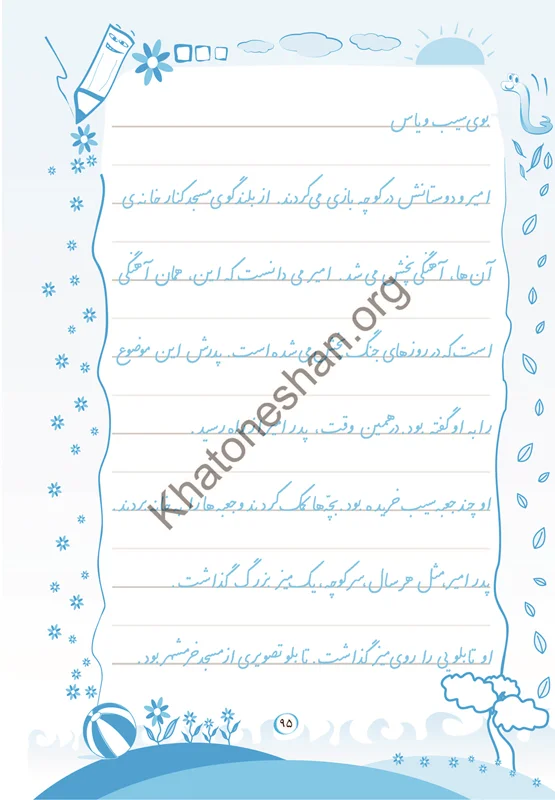 بوی سیب و یاس
امیر و دوستانش در کوچه بازی می‌کردند. از بلندگوی مسجد کنار خانه‌ی
آن‌ها، آهنگی پخش می‌شد. امیر می‌دانست که این، همان آهنگی
است که در روزهای جنگ پخش می‌شده است. پدرش این موضوع
را به او گفته بود. در همین وقت، پدر امیر از راه رسید.
او چند جعبه سیب خریده بود. بچّه‌ها کمک کردند و جعبه‌ها را به خانه بردند.
پدر امیر مثل هر سال، سر کوچه، یک میز بزرگ گذاشت.
او تابلویی را روی میز گذاشت. تابلو تصویری از مسجد خرمشهر بود.
۹۵
Khatoneshan.org